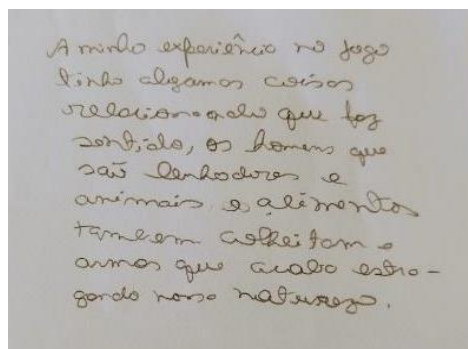 A minha experiência no jogo
tinha algamas coisas
relacionando que faz
sentido, os homens que
são lenhadores e
animais e alimentos
tambem colheitam e
armas que acaba estra-
gando nossa natureza.